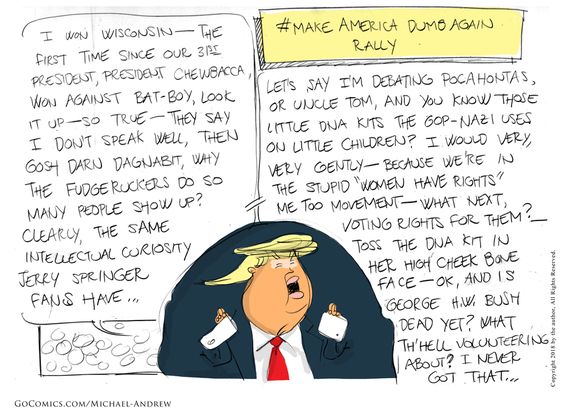 I WON WISCONSIN — THE
FIRST TIME SINCE OUR 31ST
PRESIDENT, PRESIDENT CHEWBACCA,
WON AGAINST BAT-BOY, LOOK
IT UP — SO TRUE — THEY SAY
I DON'T SPEAK WELL, THEN
GOSH DARN DAGNABIT, WHY
THE FUDGERUCKERS DO SO
MANY PEOPLE SHOW UP?
CLEARLY, THE SAME
INTELLECTUAL CURIOSITY
JERRY SPRINGER
FANS HAVE...
#MAKE AMERICA DUMB AGAIN
RALLY
LET'S SAY I'M DEBATING POCAHONTAS,
OR UNCLE TOM, AND YOU KNOW THOSE
LITTLE DNA KITS THE GOP-NAZI USES
ON LITTLE CHILDREN? I WOULD VERY,
VERY GENTLY — BECAUSE WE'RE IN
THE STUPID "WOMEN HAVE RIGHTS"
ME TOO MOVEMENT — WHAT NEXT,
VOTING RIGHTS FOR THEM? —
TOSS THE DNA KIT IN
HER HIGH CHEEK BONE
FACE — OK, AND IS
GEORGE H.W. BUSH
DEAD YET? WHAT
TH'HELL VOLUNTEERING
ABOUT? I NEVER
GOT THAT...
Copyright 2018 by the author, All Rights Reserved.
GOCOMICS.COM/MICHAEL-ANDREW